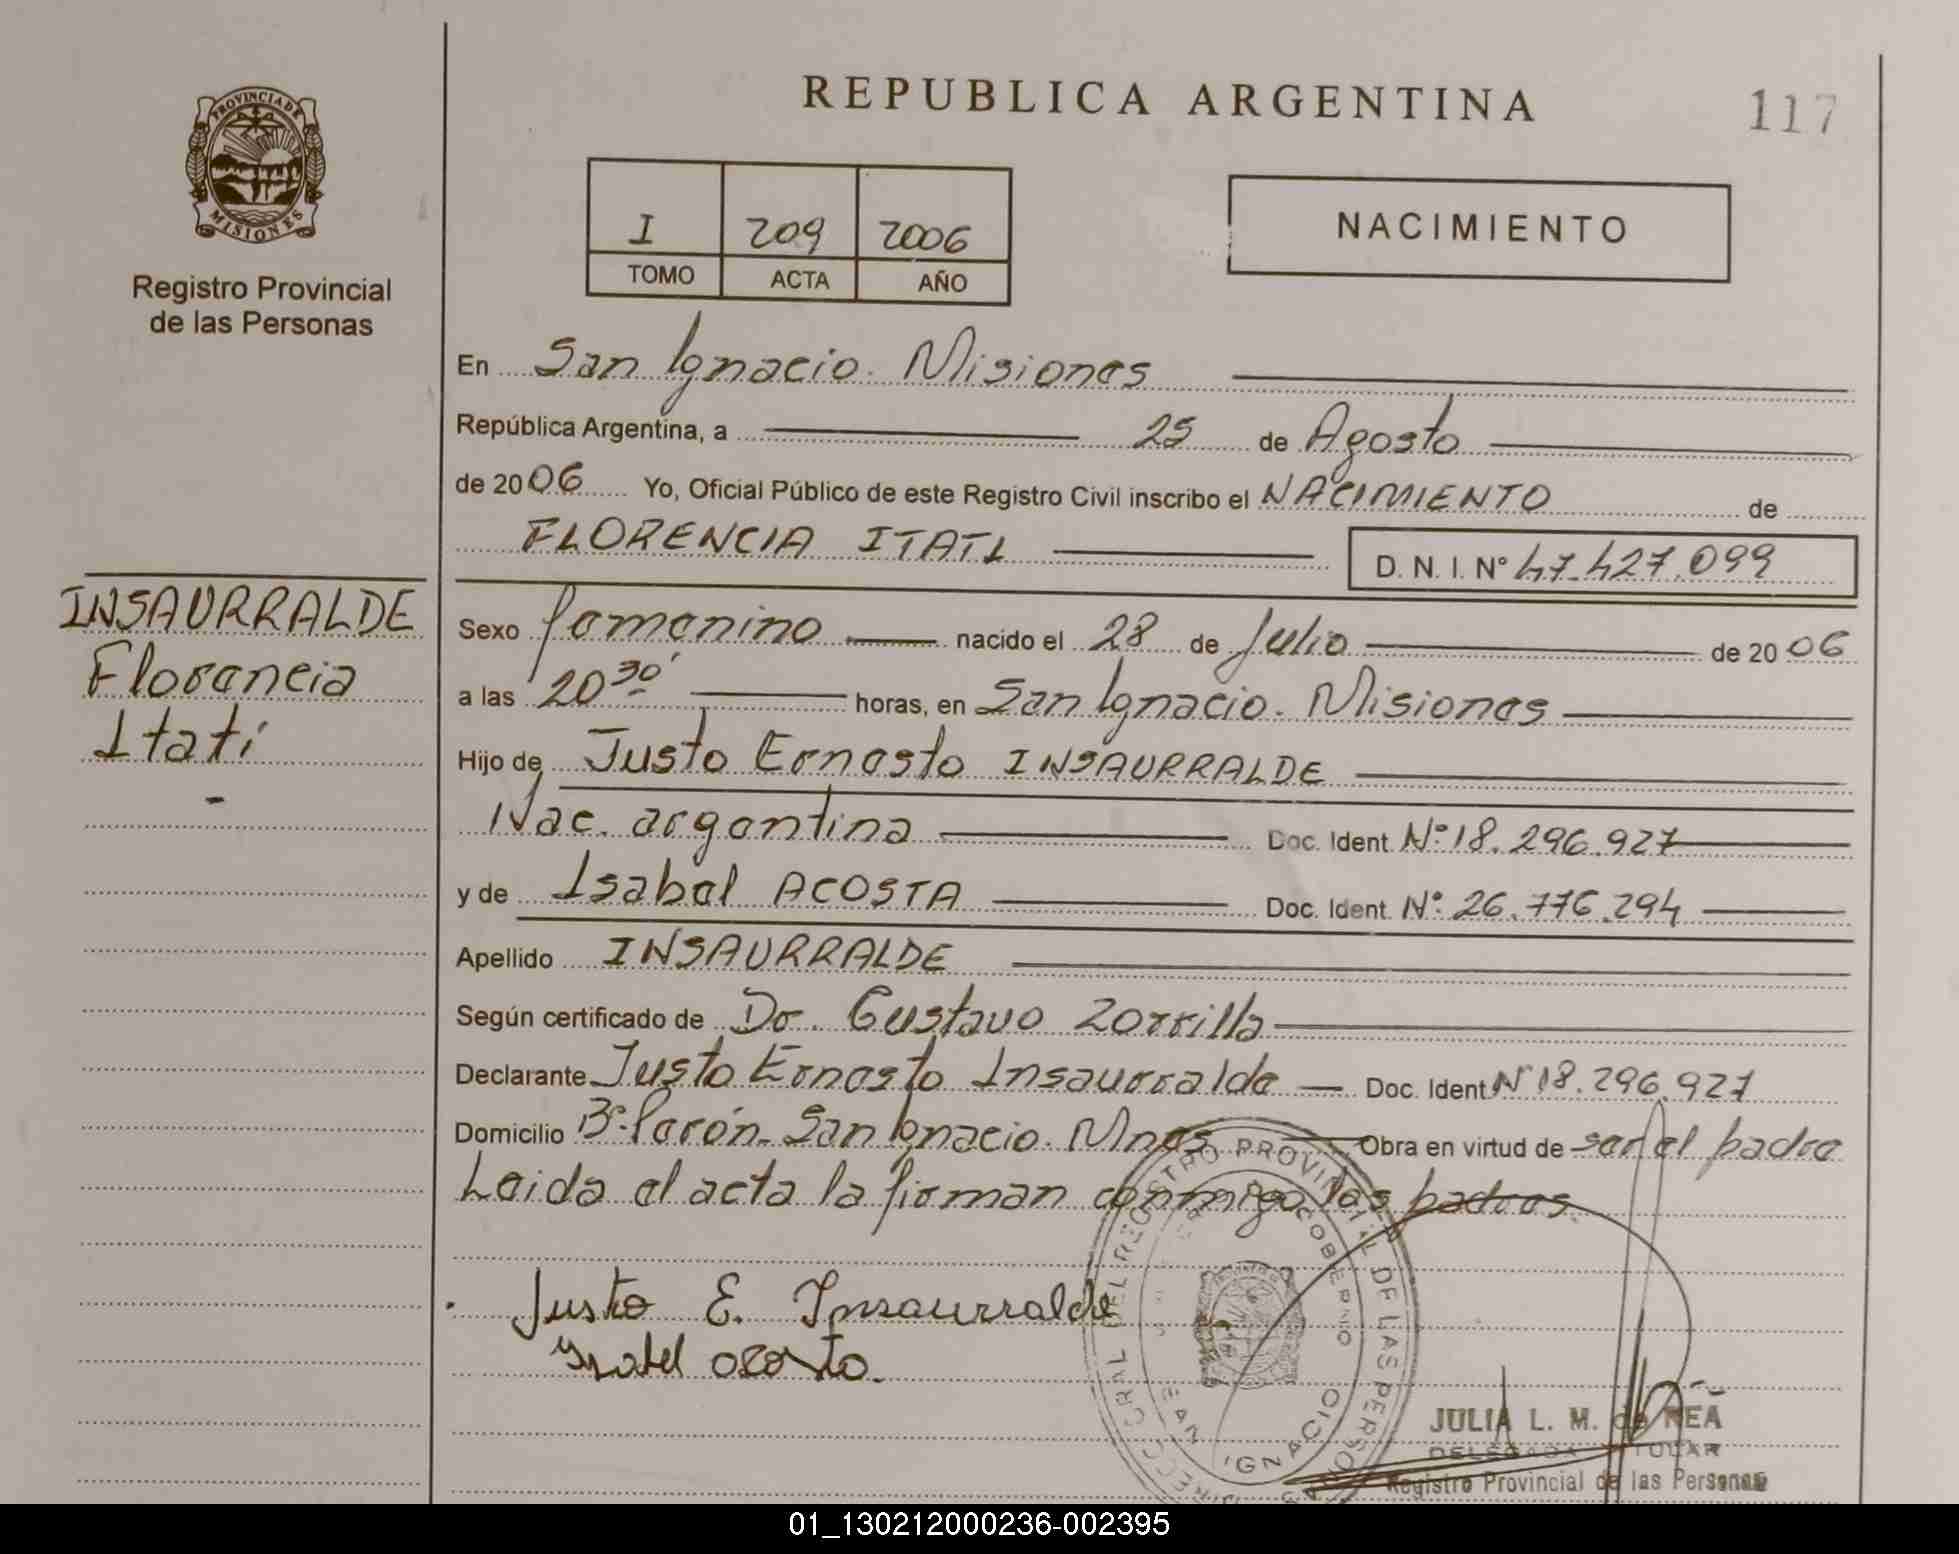 REPUBLICA ARGENTINA
117
PROVINCIA DE
MISIONES
Registro Provincial
de las Personas
I 209 2006
TOMO ACTA AÑO
NACIMIENTO
En San Ignacio. Misiones
República Argentina, a 25 de Agosto
de 2006 Yo, Oficial Público de este Registro Civil inscribo el NACIMIENTO de
FLORENCIA ITATI D. N. I. Nº 47.427.099
INSAURRALDE
Florencia
Itatí
Sexo femenino nacido el 28 de Julio de 2006
a las 20 30' horas, en San Ignacio. Misiones
Hijo de Justo Ernesto INSAURRALDE
Nac. argentina Doc. Ident. Nº 18.296.927
y de Isabel ACOSTA Doc. Ident. Nº 26.776.294
Apellido INSAURRALDE
Según certificado de Dr. Gustavo Zorrilla
Declarante Justo Ernesto Insaurralde Doc. Ident. Nº 18.296.927
Domicilio Bº Perón. San Ignacio. Mnes Obra en virtud de ser el padre
Leida el acta la firman conmigo los padres.
Justo E. Insaurralde
Ysabel acosta.
REGISTRO PROVINCIAL DE LAS PERSONAS
GOBIERNO
SAN IGNACIO
JULIA L. M. de REA
DELEGADA TITULAR
Registro Provincial de las Personas
01_130212000236-002395